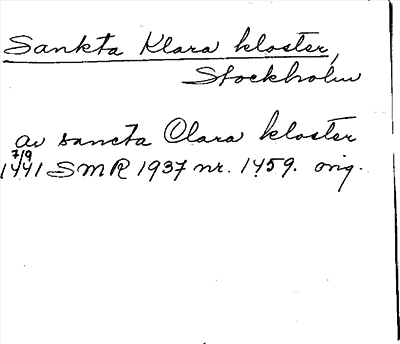 Sankta Klara kloster,
Stockholm
av sancta Clara kloster
7/9
1441 SMR 1937 nr. 1459. orig.